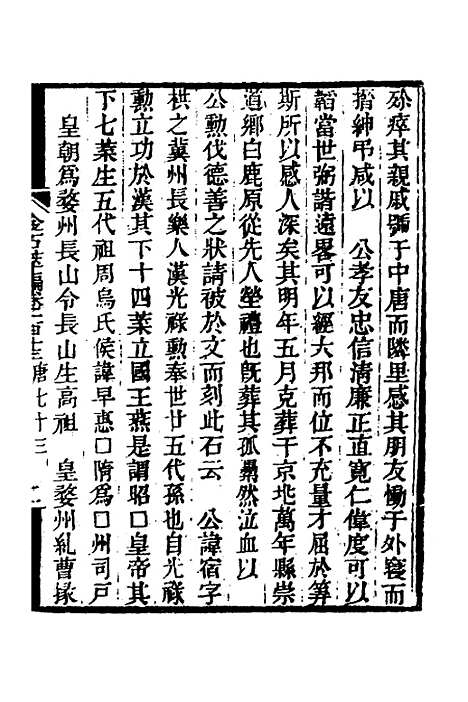 殄瘁其親戚號于中唐而隣里感其朋友慟于外寢而
搢紳弔咸以　公孝友忠信清廉正直寬仁偉度可以
韜當世弼諧遠畧可以經大邦而位不充量才屈於筭
斯所以感人深矣其明年五月克葬于京兆萬年縣崇
道鄉白鹿原從先人塋禮也旣葬其孤纍然泣血以
公勳伐德善之狀請被於文而刻此石云　公諱宿字
拱之冀州長樂人漢光祿勳奉世廿五代孫也自光祿
勳立功於漢其下十四葉立國王燕是謂昭□皇帝其
下七葉生五代祖周烏氏侯諱早惠□隋為□州司戶
皇朝為婺州長山令長山生高祖　皇婺州糺曹掾
金石萃編卷一百十三唐七十三